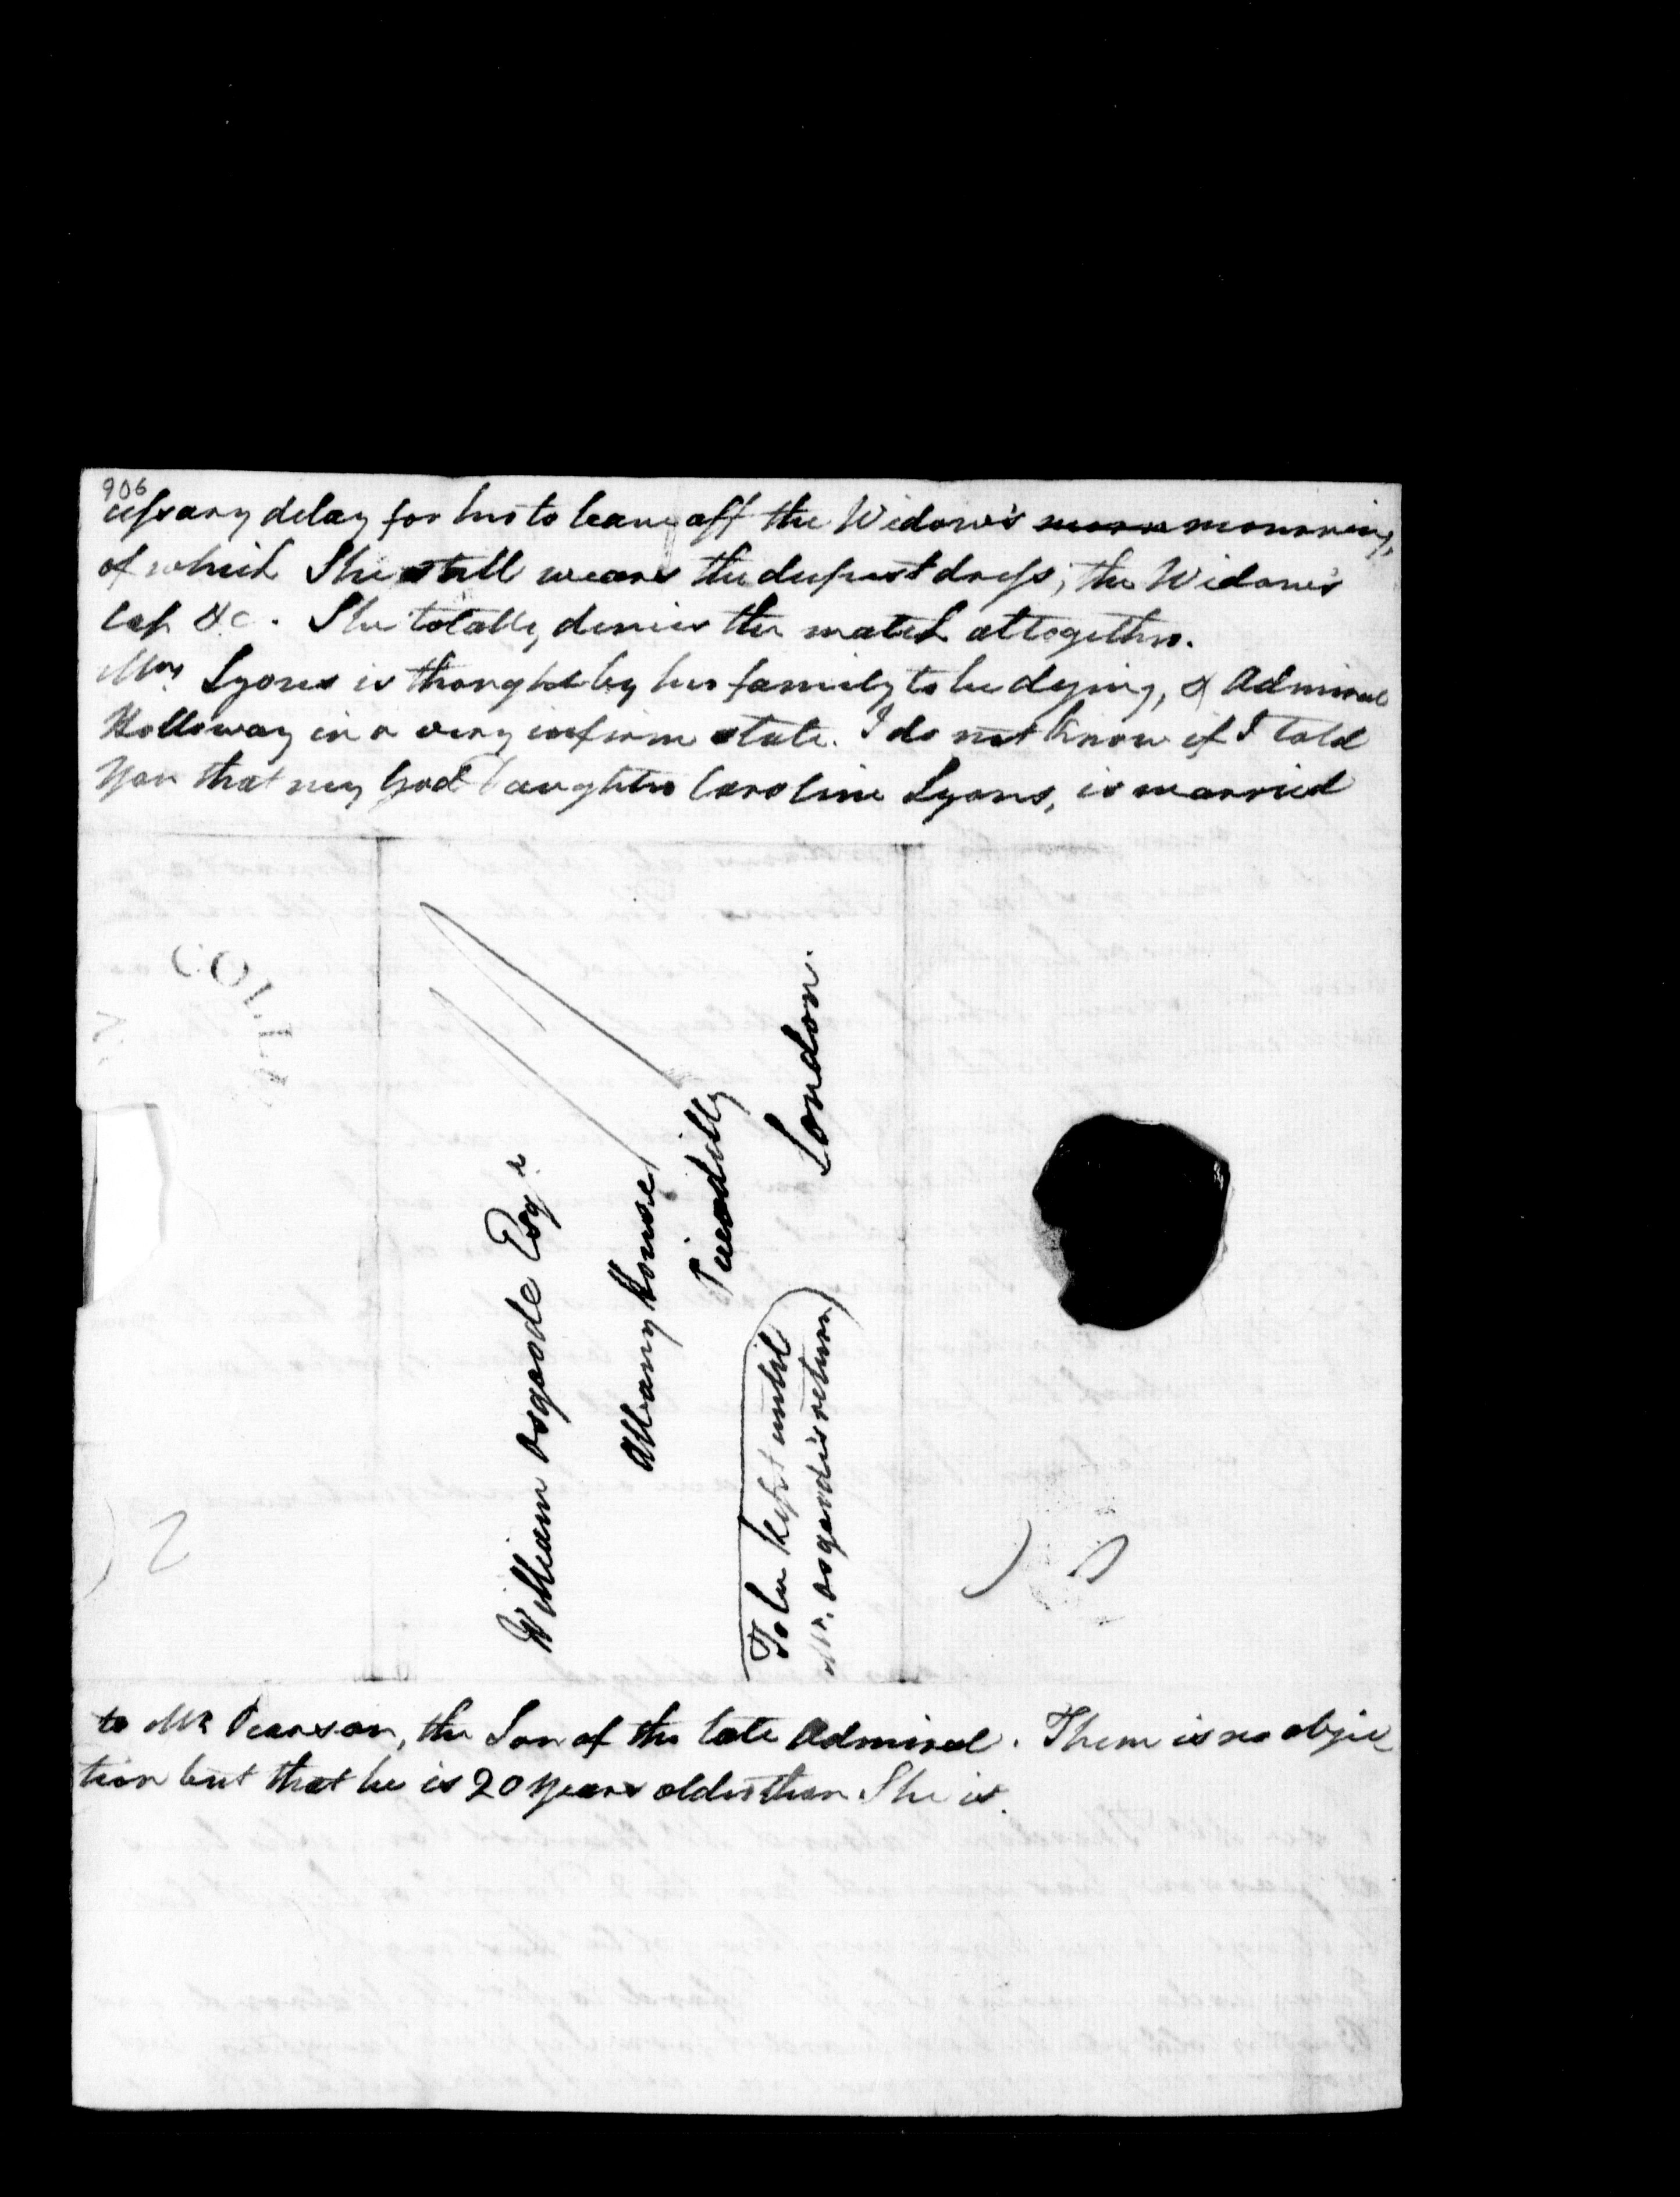 906
cessary delay for her to leave off the Widow's mourning,
of which She still wears the deepest dress, the Widow's
Cap &c. She totally denies the match altogether.
Mrs Lyons is thought by her family to be dying, & Admiral
Holloway in a very infirm state. I do not know if I told
you that my God Daughter Caroline Lyons, is married
COL
William Osgoode Esqr.
Albany House
Piccadilly
London.
To be kept until
Mr. Osgoode's return
2
to Mr Pearson, the Son of the late Admiral. There is no objec
tion but that he is 20 years older than She is.